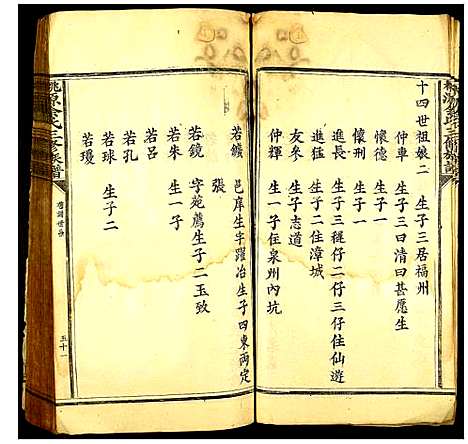 十四世祖娘二　生子三居福州
仲車　生子三曰清曰甚愿生
懷德　生子一
懷刑　生子一
進長　生子三從仔二仔三仔住仙遊
進猛　生子二住漳城
友參　生子志道
仲鐸　生子一住泉州內坑
桃源 氏三修族譜
若鑛　邑庠生字躍冶生子四東兩定
張
若鏡　字苑薦生子二玉致
若朱　生一子
若呂
若孔
若球　生子二
若瓊
桃源 氏三修族譜
世
五十一